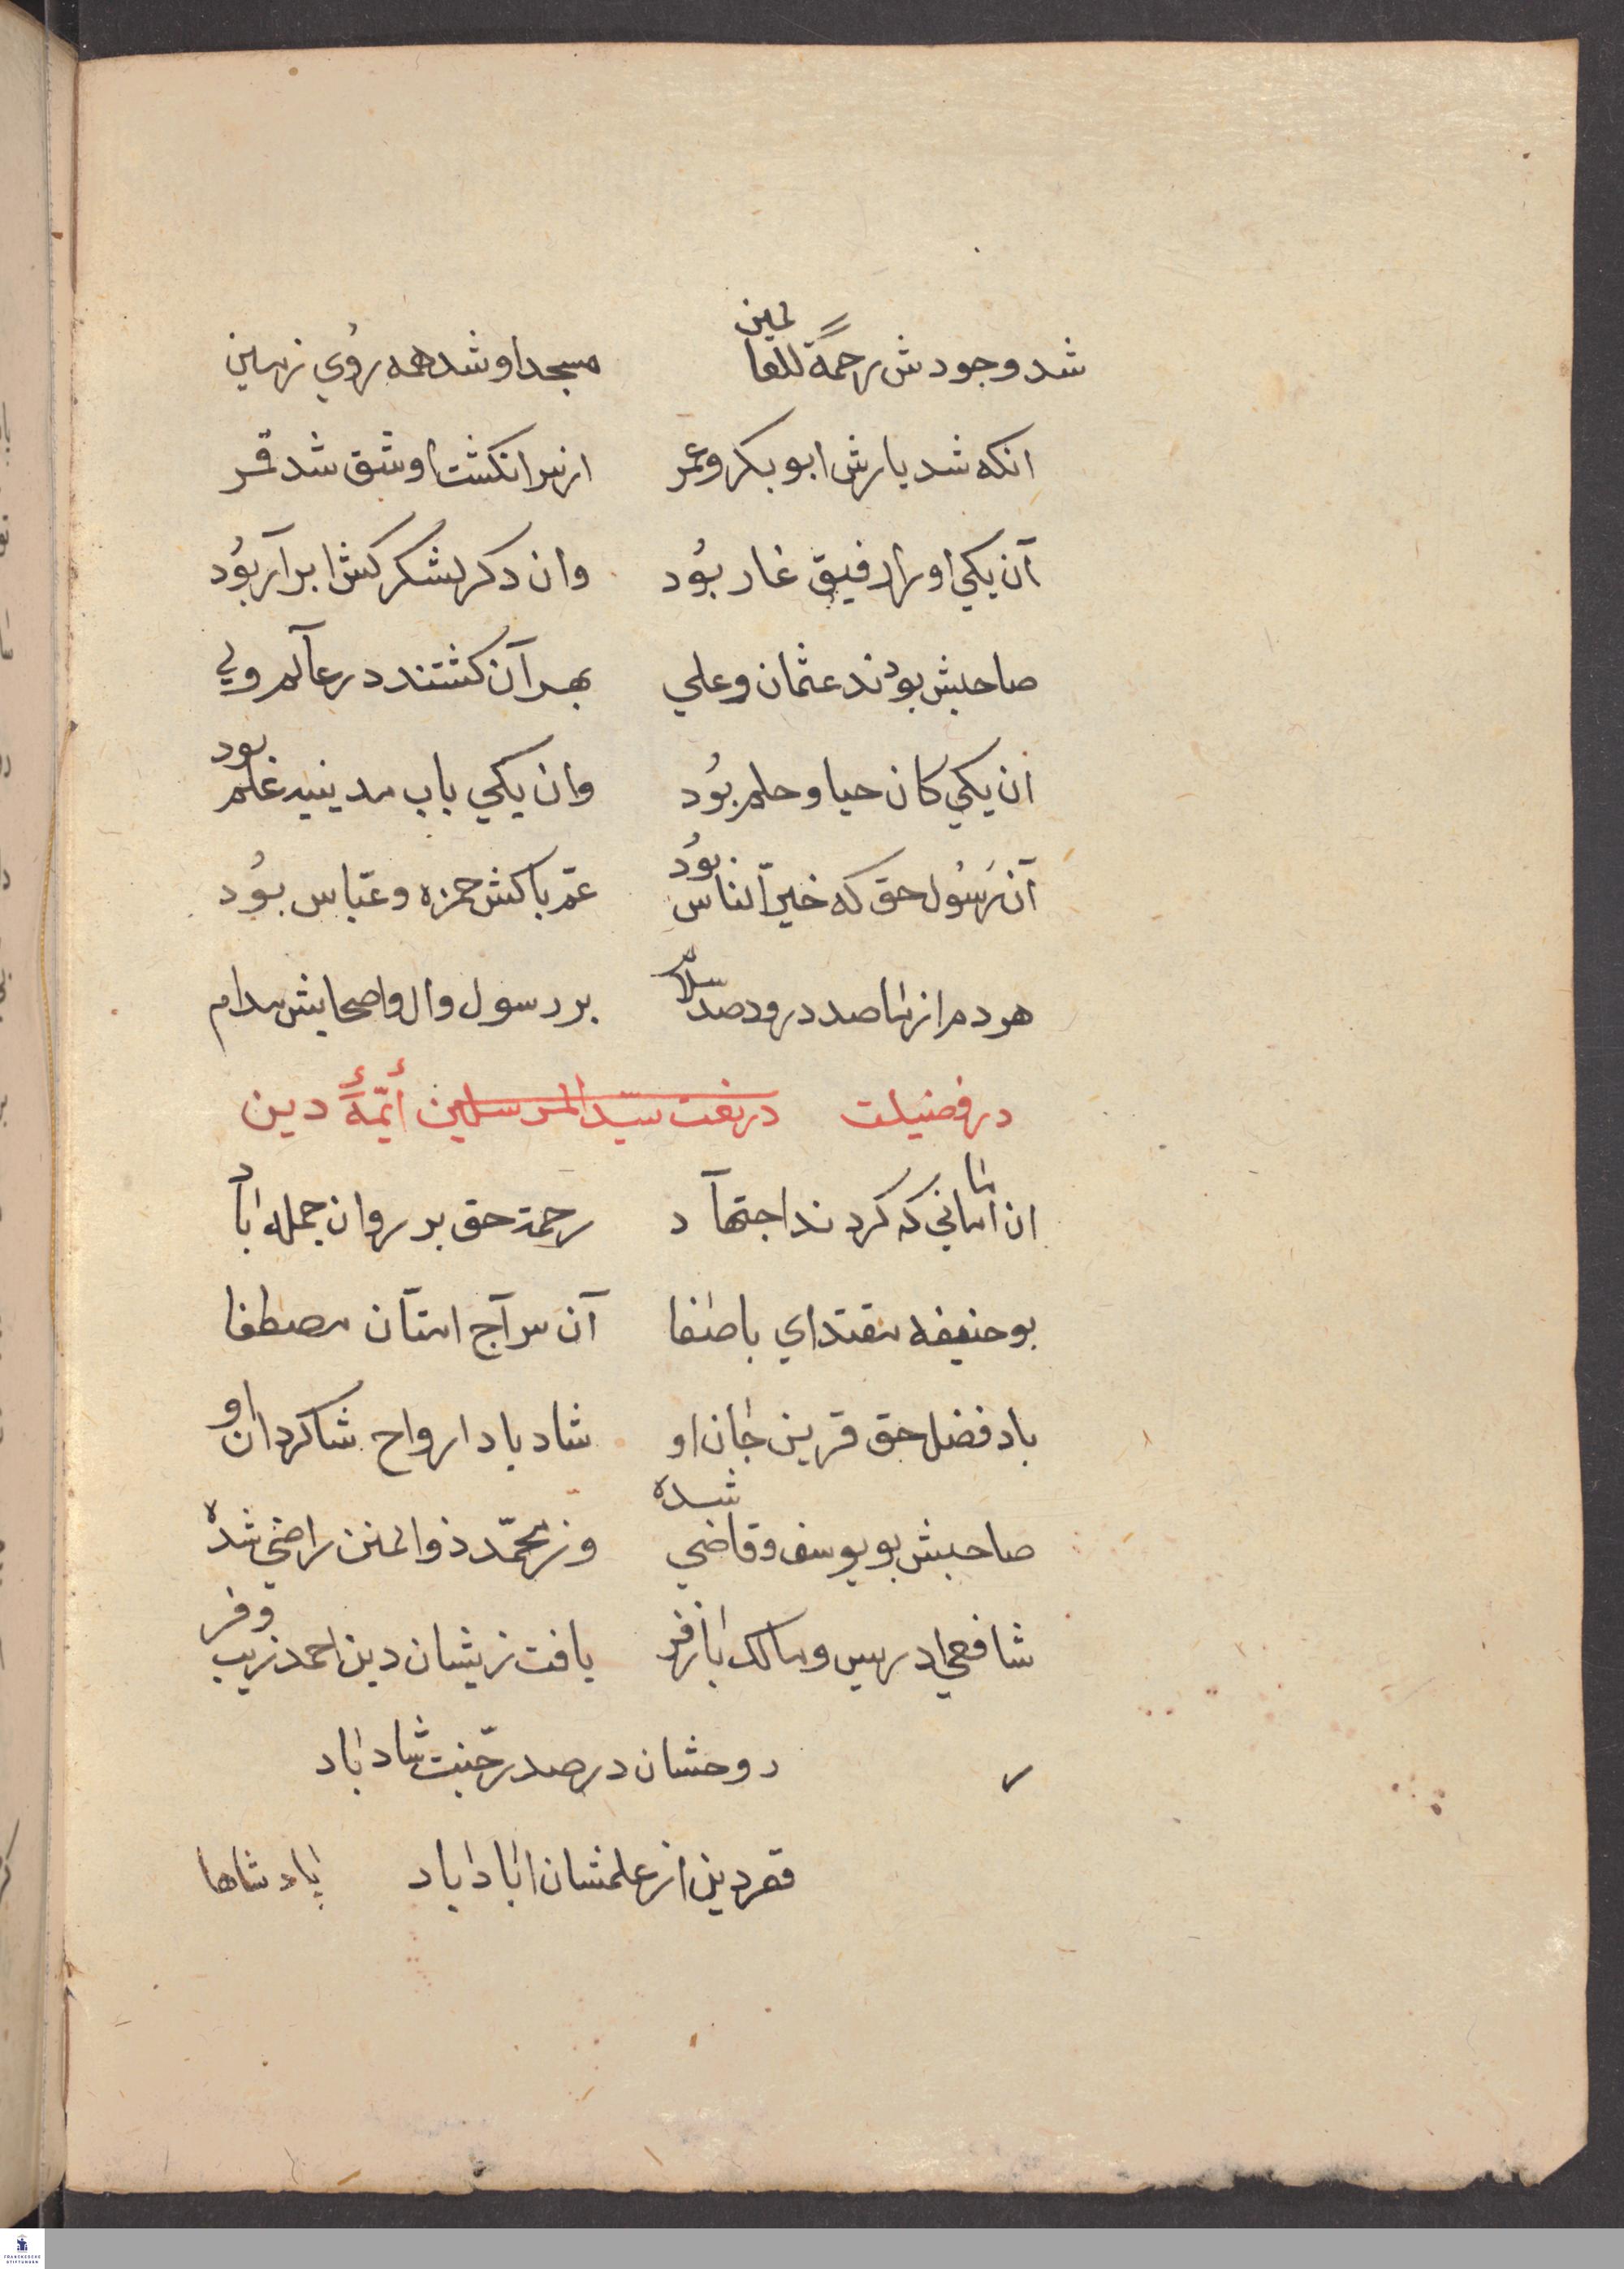 شد وجودش رحمةً للعالمين مسجد او شد همه رُوي زمين
انكه شد يارش ابو بكر و عمر از سر انكشت او شق شد قمر
آن يكي او را رفيق غار بوُد وان دكر لشكر كش ابرآر بوُد
صاحبش بودند عثمان و علي بهر آن كشتند در عآلم ولي
ان يكي كان حيا و حلم بوُد وان يكي باب مدينيه علم بود
آن رسُول حق كه خير آلناس بوُد عمّ باكش حمزه و عبّاس بوُد
هر دم از ما صد درود صد سلام بر رسول وال واصحابش مدام
در فضيلت در نعت سيّد المرسلين أئمّهٔ دين
ان امامانى كه كردند اجتهآد رحمة حق بر روان جمله باد
بو حنيفه مقتداي با صفا آن سرآج امتآن مصطفا
باد فضل حق قرين جان او شاد باد ارواح شاكردان او
صاحبش بو يوسف و قاضي شده وز محمّد ذو المنن راضي شده
شافعي ادريس و مالك با زفر يافت زيشان دين احمد زيب و فر
روحشان در صدر جّنت شاد باد
قصر دين از علمشان اباد باد پادشاها